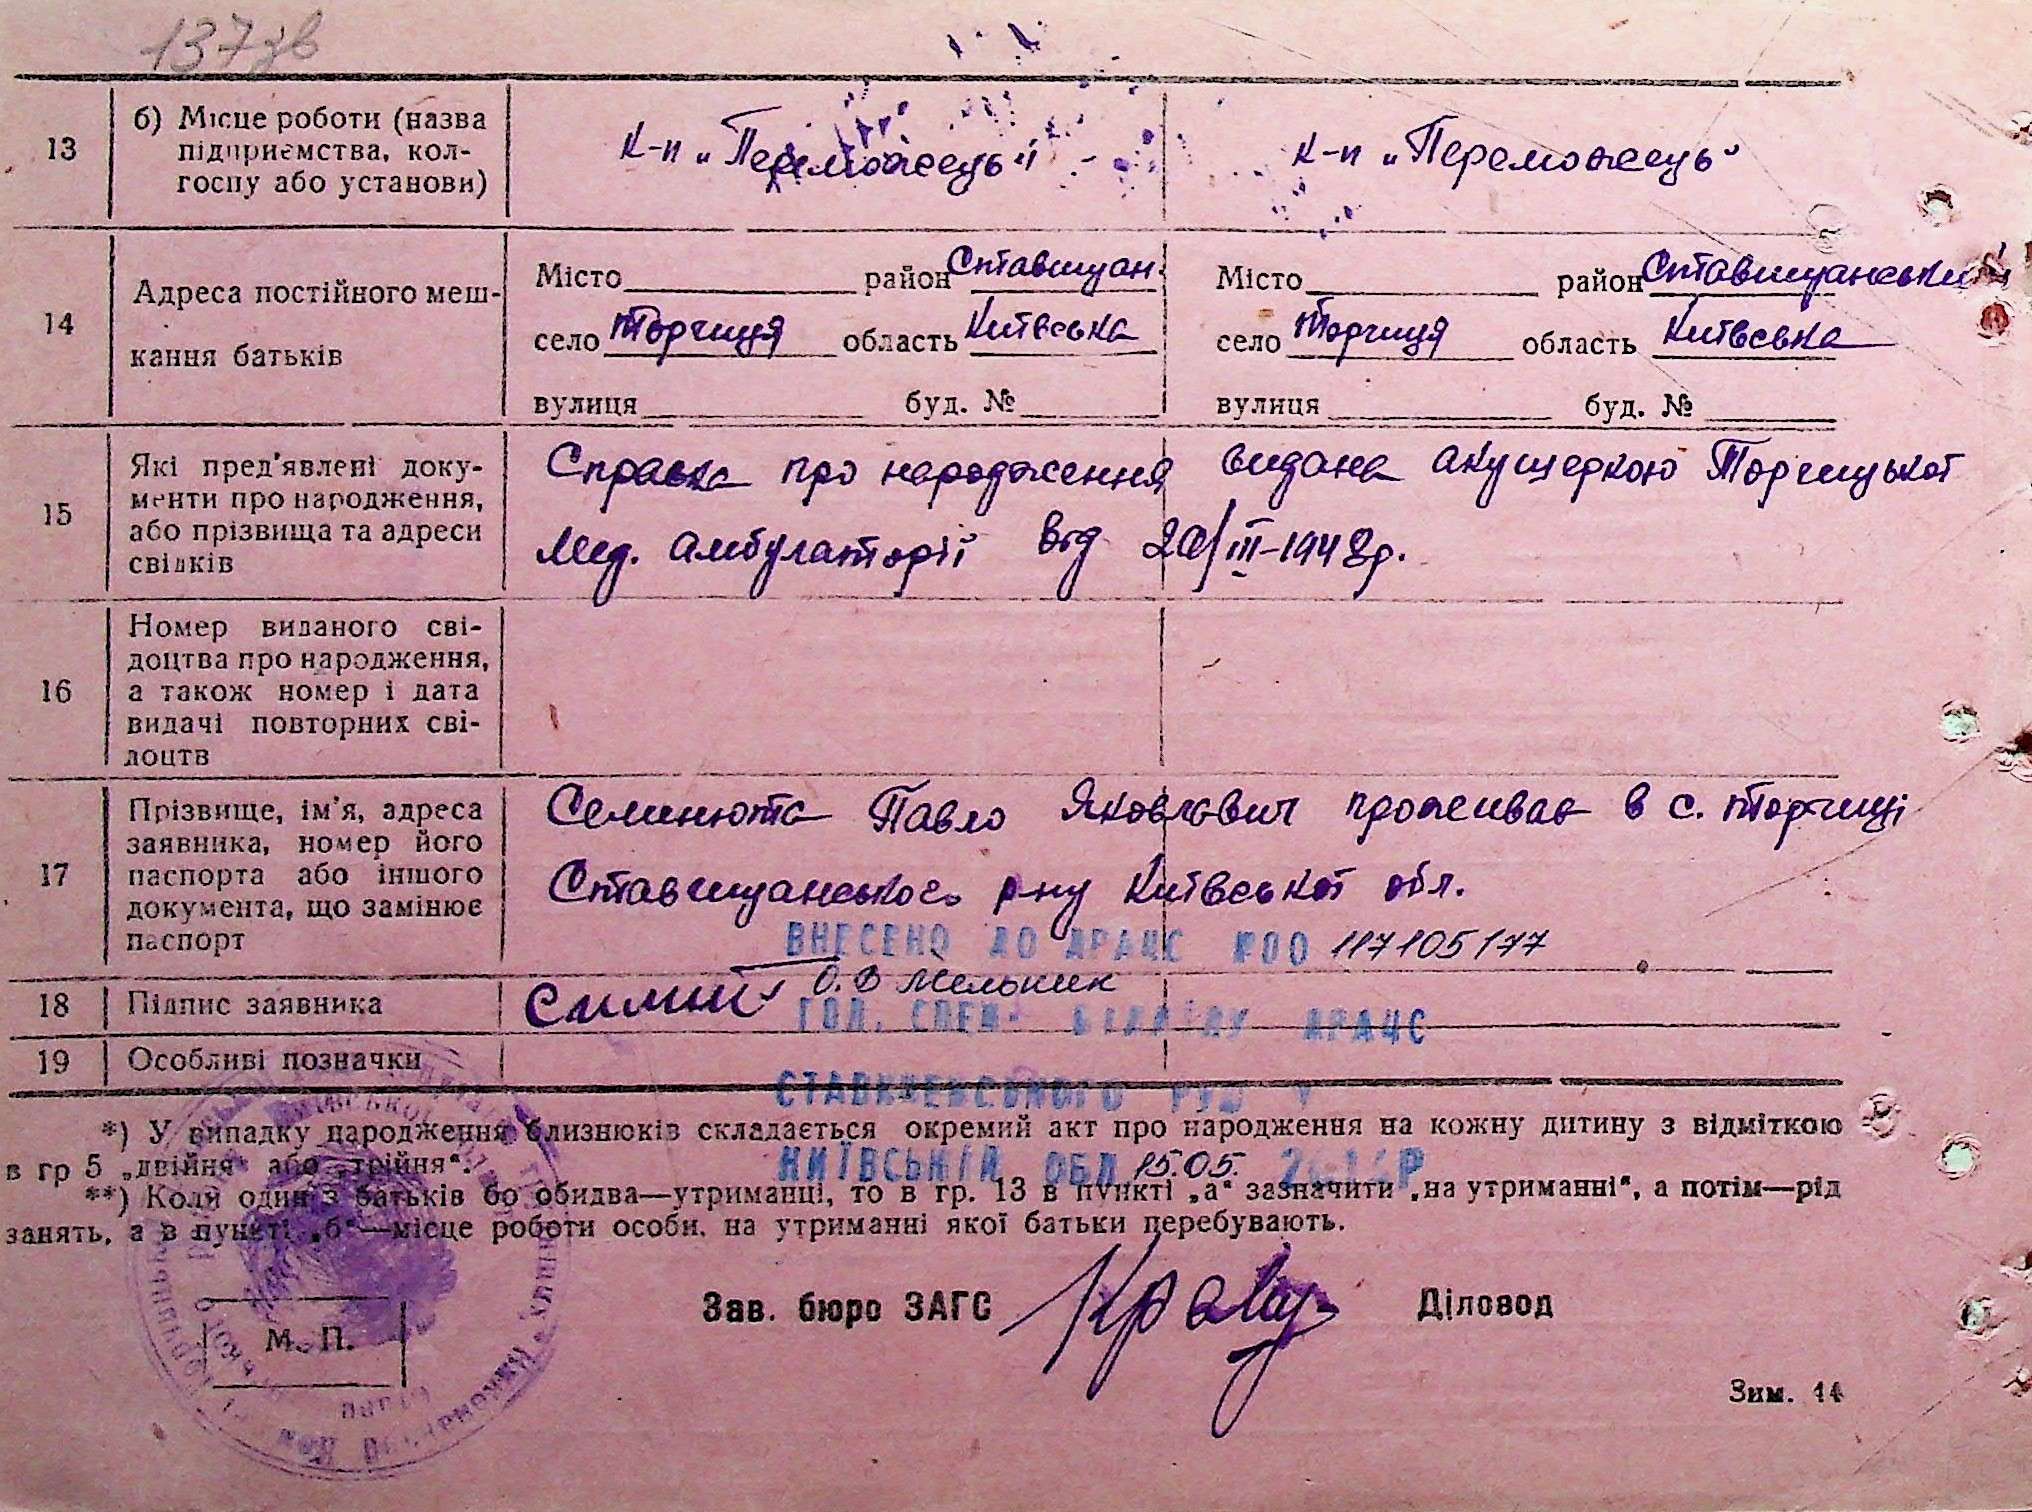 137зв
13
б) Місце роботи (назва
підприємства, кол-
госпу або установи)
к-п „Переможець"
к-п „Переможець"
14
Адреса постійного меш-
кання батьків
Місто район Ставищан.
село Торчиця область Київська
вулиця буд. №
Місто район Ставищанський
село Торчиця область Київська
вулиця буд. №
15
Які пред'явлені доку-
менти про народження,
або прізвища та адреси
свідків
Справка про народження видана акущеркою Торчицької
Мед. амбулаторії від 20/III-1948р.
16
Номер виданого сві-
доцтва про народження,
а також номер і дата
видачі повторних сві-
доцтв
17
Прізвище, ім'я, адреса
заявника, номер його
паспорта або іншого
документа, що замінює
паспорт
Семинюта Павло Яковлович проживає в с. Торчиці
Ставищанського р-ну Київської обл.
ВНЕСЕНО ДО ДРАЦС 00117105177
18
Підпис заявника
О.В Мельник
ГОЛ. СПЕЦ. ВІДДІЛУ ДРАЦС
19
Особливі позначки
СТАВИЩЕНСЬКОГО РУЮ У
*) У випадку народження близнюків складається окремий акт про народження на кожну дитину з відміткою
в гр 5 „двійня" або „трійня".
КИЇВСЬКІЙ ОБЛ 15.05.
**) Коли один з батьків бо обидва—утриманці, то в гр. 13 в пункті „а" зазначити „на утриманні", а потім—рід
занять, а в пункті „б"—місце роботи особи, на утриманні якої батьки перебувають.
Зав. бюро ЗАГС
Діловод
М. П.
Зим. 14